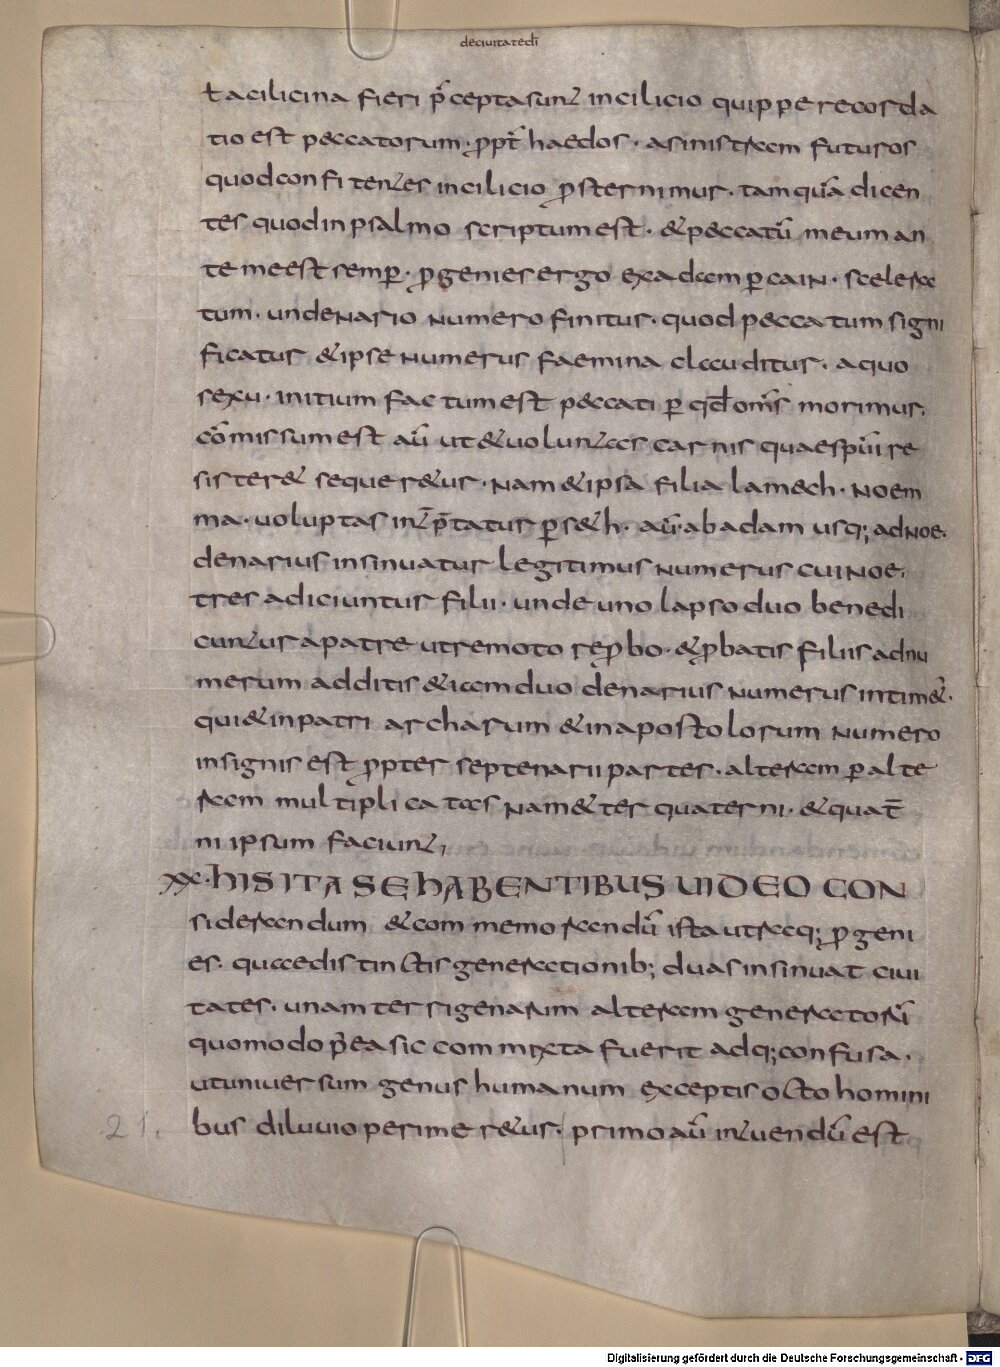 deciuitatedī
ta cilicina fieri p̄cepta sunt in cilicio quippe recorda
tio est peccatorum · ꝓpt̄ haedos · a sinistram futuros
quod confitentes in cilicio ꝓsternimur · tamquā dicen
tes quod in psalmo scriptum est · & peccatū meum an
te me est semꝑ · ꝓgenies ergo ex adam ꝑ cain · scelera
tum · undenario numero finitur · quod peccatum signi
ficatur & ipse numerus faemina clauditur · a quo
sexu · initium factum est peccati ꝑ qđ om̄s morimur ·
cōmissum est aū ut & uoluntas carnis quae spūi re
sister& sequer&ur · nam & ipsa filia lamech · noem
ma · uoluptas int̄p̄tatur ꝑ s&h · aū · ab adam usq; ad noe ·
denarius insinuatur legitimus numerus cui noe ·
tres adiciuntur filii · unde uno lapso duo benedi
cuntur a patre ut remoto reꝓbo · & ꝓbatis filiis ad nu
merum additis & iam duodenarius numerus intim&ʼ ·
qui & in patriarcharum & in apostolorum numero
insignis est ꝓpter septenarii partes · alteram ꝑ alte
ram multiplicatas nam & ter quaterni · & quat̄
ni ipsum faciunt;
xx · HIS ITA SE HABENTIBUS UIDEO CON
siderandum & commemorandū ista utraq; ꝓgeni
es · quae distinctis generationib; duas insinuat ciui
tates · unam terrigenarum alteram generatorū
quomodo p̄ea sic commixta fuerit adq; confusa ·
ut uniuersum genus humanum exceptis octo homini
bus diluuio perimer&ur · primo aū intuendū est
21.
Digitalisierung gefördert durch die Deutsche Forschungsgemeinschaft - DFG